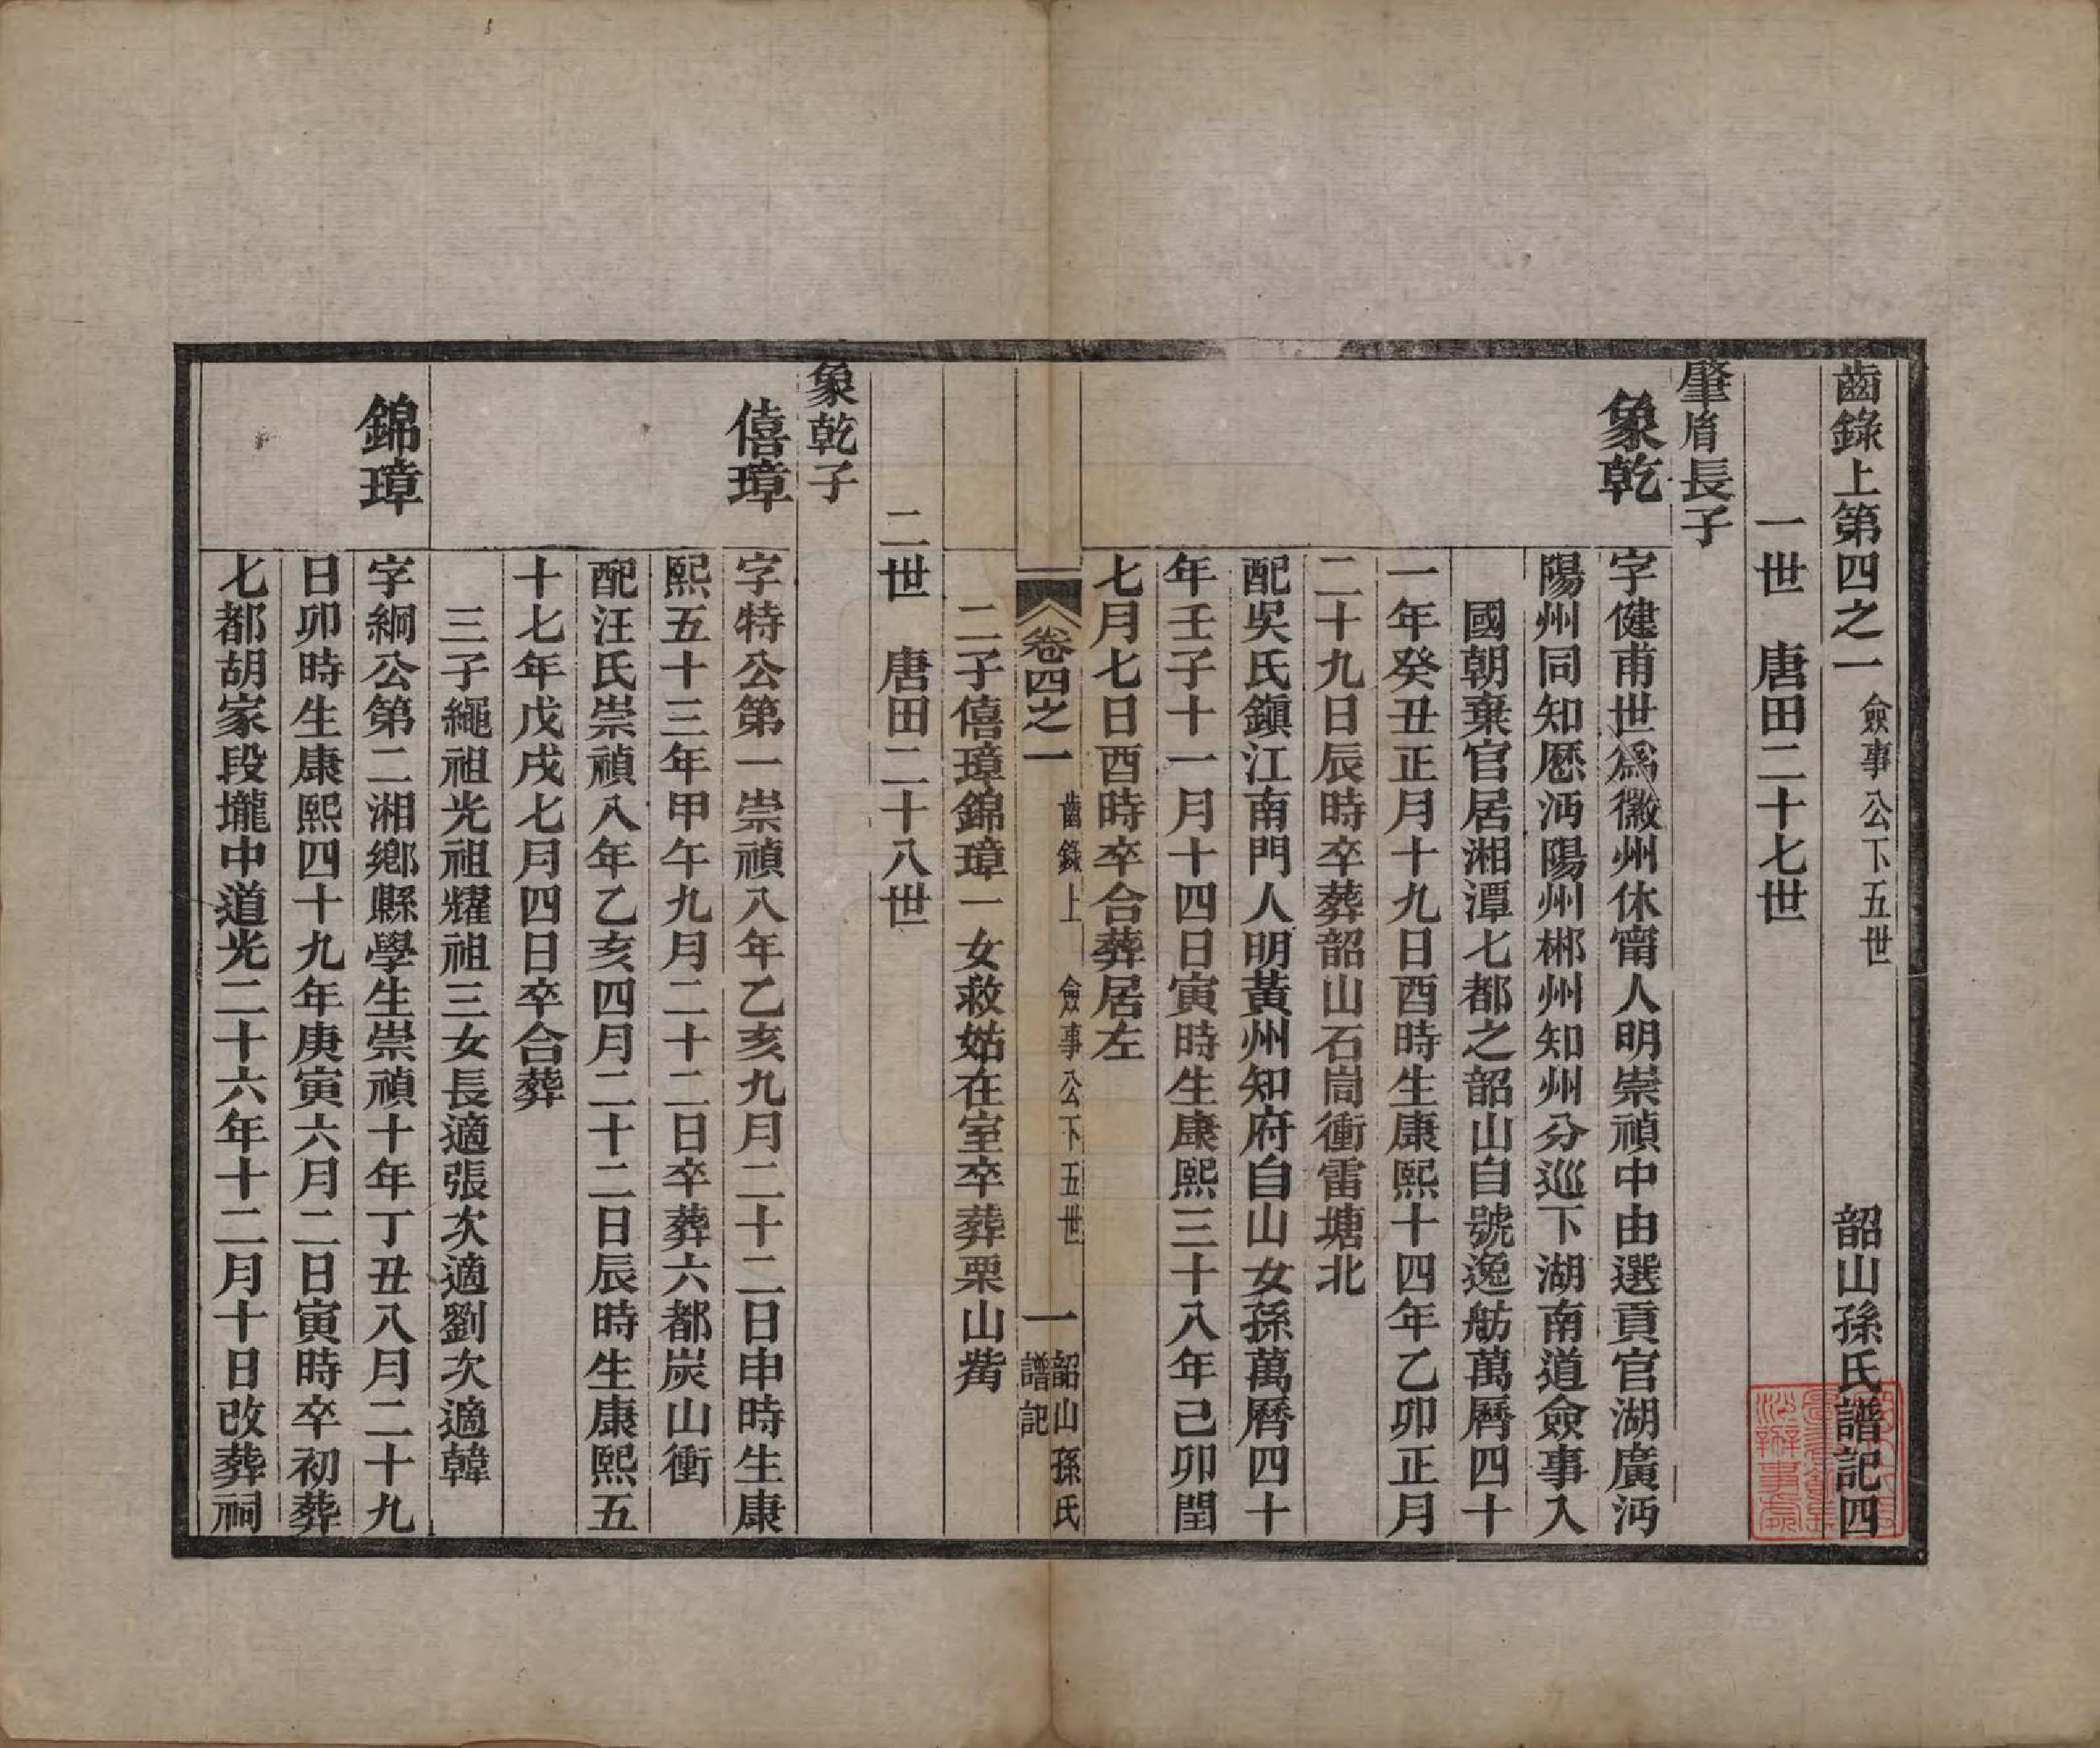 齒錄上第四之一　僉事公下五世　韶山孫氏譜記四
一世　唐田二十七世
肇脜長子
象乾
字健甫世爲徽州休甯人明崇禎中由選貢官湖廣沔
陽州同知厯沔陽州郴州知州分巡下湖南道僉事入
國朝棄官居湘潭七都之韶山自號逸舫萬曆四十
一年癸丑正月十九日酉時生康熙十四年乙卯正月
二十九日辰時卒葬韶山石崗衝雷塘北
配吳氏鎭江南門人明黃州知府自山女孫萬曆四十
年壬子十一月十四日寅時生康熙三十八年己卯閏
七月七日酉時卒合葬居左
二子僖璋錦璋一女救姑在室卒葬栗山觜
卷四之一　齒錄上　僉事公下五世　一　韶山孫氏譜記
二世　唐田二十八世
象乾子
僖璋
字特公第一崇禎八年乙亥九月二十二日申時生康
熙五十三年甲午九月二十二日卒葬六都炭山衝
配汪氏崇禎八年乙亥四月二十二日辰時生康熙五
十七年戊戌七月四日卒合葬
三子繩祖光祖耀祖三女長適張次適劉次適韓
錦璋
字絅公第二湘鄉縣學生崇禎十年丁丑八月二十九
日卯時生康熙四十九年庚寅六月二日寅時卒初葬
七都胡家段壠中道光二十六年十二月十日改葬祠